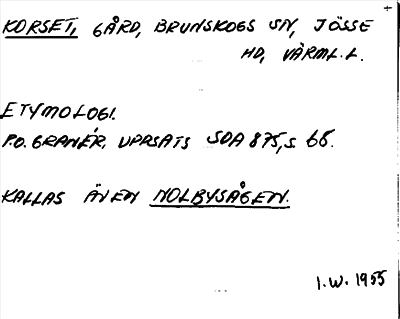 KORSET, GÅRD, BRUNSKOGS SN, JÖSSE
HD, VÄRML. L.
ETYMOLOGI.
P.O. GRANÉR, UPPSATS SOA 875, S. 68.
KALLAS ÄVEN NOLBYSÅGEN.
I.W. 1955